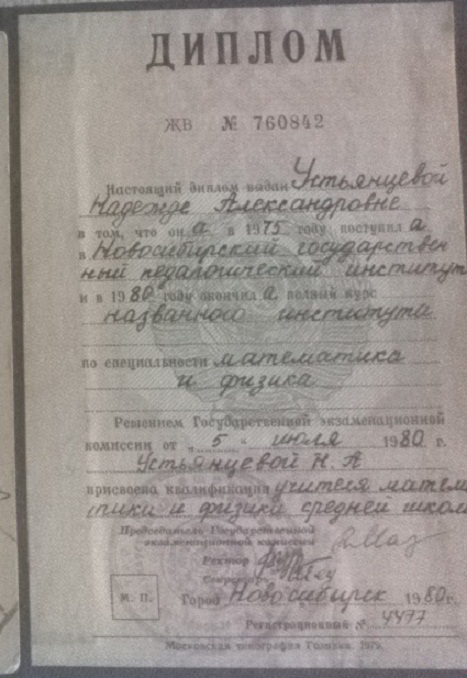 ДИПЛОМ
ЖВ № 760842
Настоящий диплом выдан Устьянцевой
Надежде Александровне
в том, что он а в 1975 году поступил а
в Новосибирский государствен
ный педагогический институт
и в 1980 году окончил а полный курс
названного института
по специальности математика
и физика
Решением Государственной экзаменационной
комиссии от „ 5 “ июля 1980 г.
Устьянцевой Н. А
присвоена квалификация учителя матем
тики и физики средней школ
Председатель Государственной
экзаменационной комиссии
Ректор
Секретарь
М. П. Город Новосибирск 1980г.
Регистрационный № 4477
Московская типография Гознака. 1979.